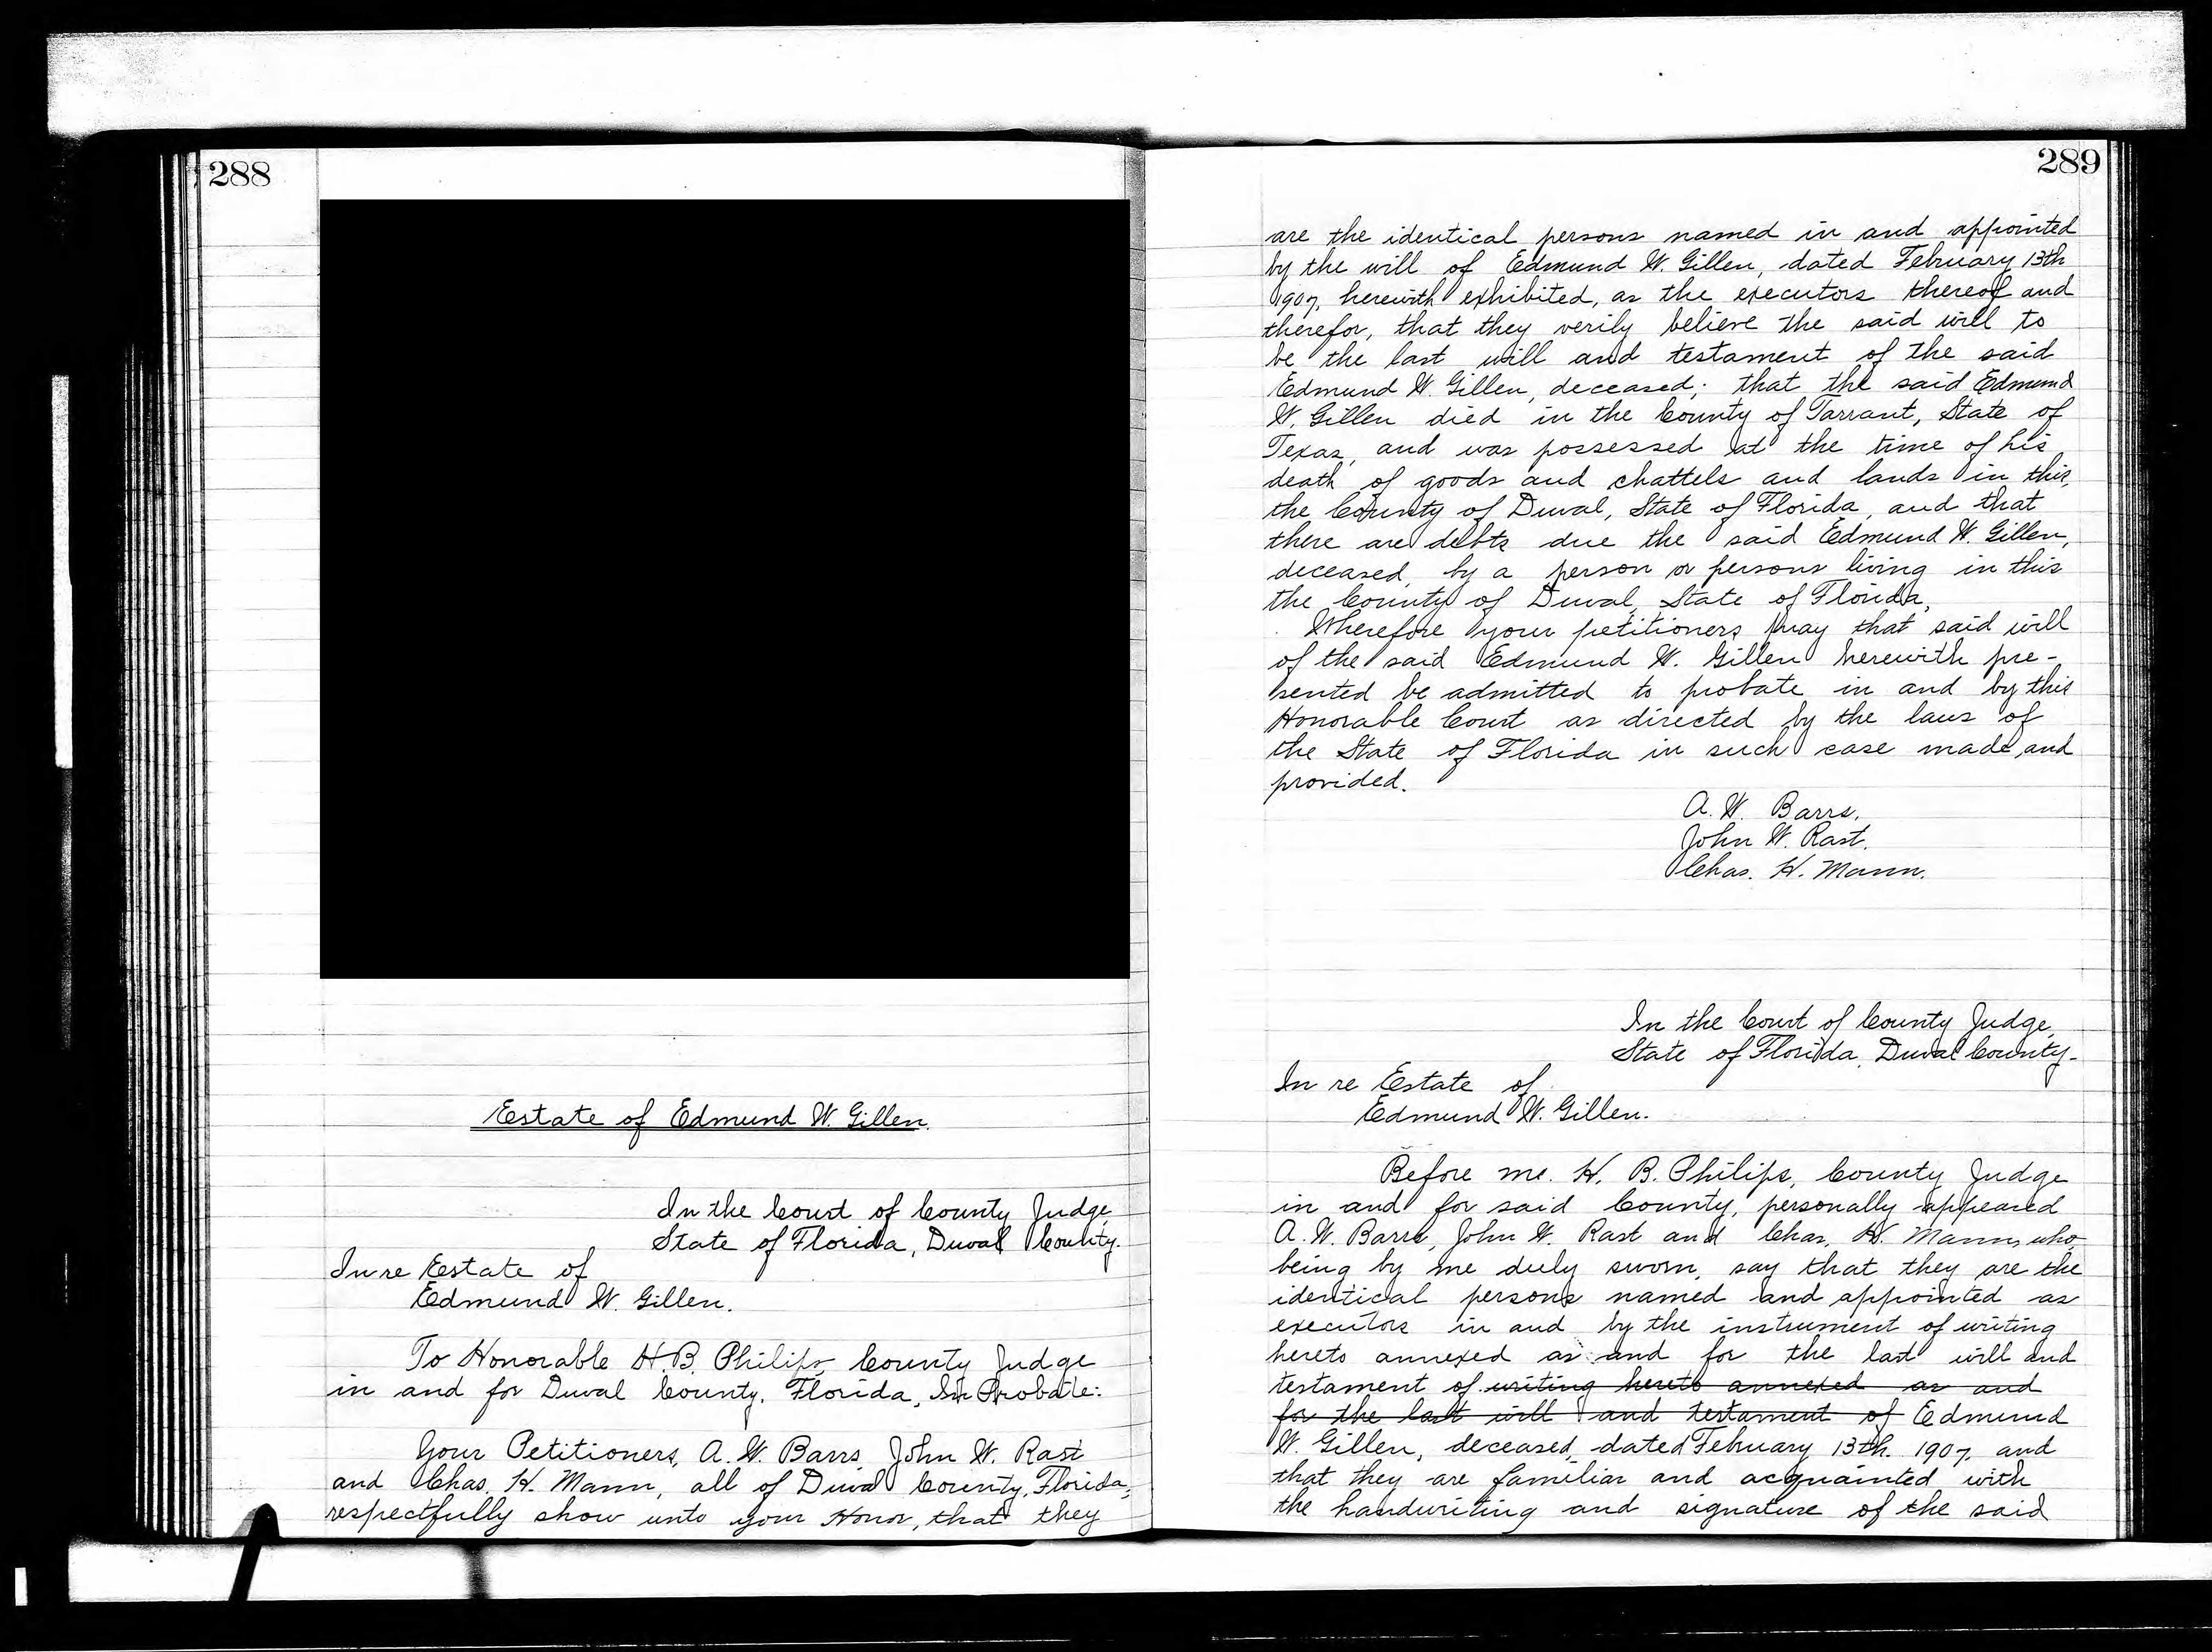 288
Estate of Edmund W. Gillen.
In the Court of County Judge,
State of Florida, Duval County.
In re Estate of
Edmund W. Gillen.
To Honorable H. B. Philips, County Judge
in and for Duval County, Florida, In Probate:
Your Petitioners, A. W. Barrs, John W. Rast
and Chas. H. Mann, all of Duval County, Florida,
respectfully show unto your Honor, that they
289
are the identical persons named in and appointed
by the will of Edmund W. Gillen, dated February 13th
1907, herewith exhibited, as the executors thereof and
therefor, that they verily believe the said will to
be the last will and testament of the said
Edmund W. Gillen, deceased; that the said Edmund
W. Gillen died in the County of Tarrant, State of
Texas, and was possessed at the time of his
death of goods and chattels and lands in this,
the County of Duval, State of Florida, and that
there are debts due the said Edmund W. Gillen,
deceased, by a person or persons living in this
the County of Duval, State of Florida,
Wherefore your petitioners pray that said will
of the said Edmund W. Gillen herewith pre-
sented be admitted to probate in and by this
Honorable Court as directed by the laws of
the State of Florida in such case made and
provided.
A. W. Barrs,
John W. Rast.
Chas. H. Mann.
In the Court of County Judge,
State of Florida, Duval County-
In re Estate of
Edmund W. Gillen.
Before me. H. B. Philips, County Judge
in and for said County, personally appeared
A. W. Barrs, John W. Rast and Chas. H. Mann, who
being by me duly sworn, say that they are the
identical persons named and appointed as
executors in and by the instrument of writing
hereto annexed as and for the last will and
testament of writing hereto annexed as and
for the last will and testament of Edmund
W. Gillen, deceased, dated February 13th. 1907, and
that they are familiar and acquainted with
the handwriting and signature of the said